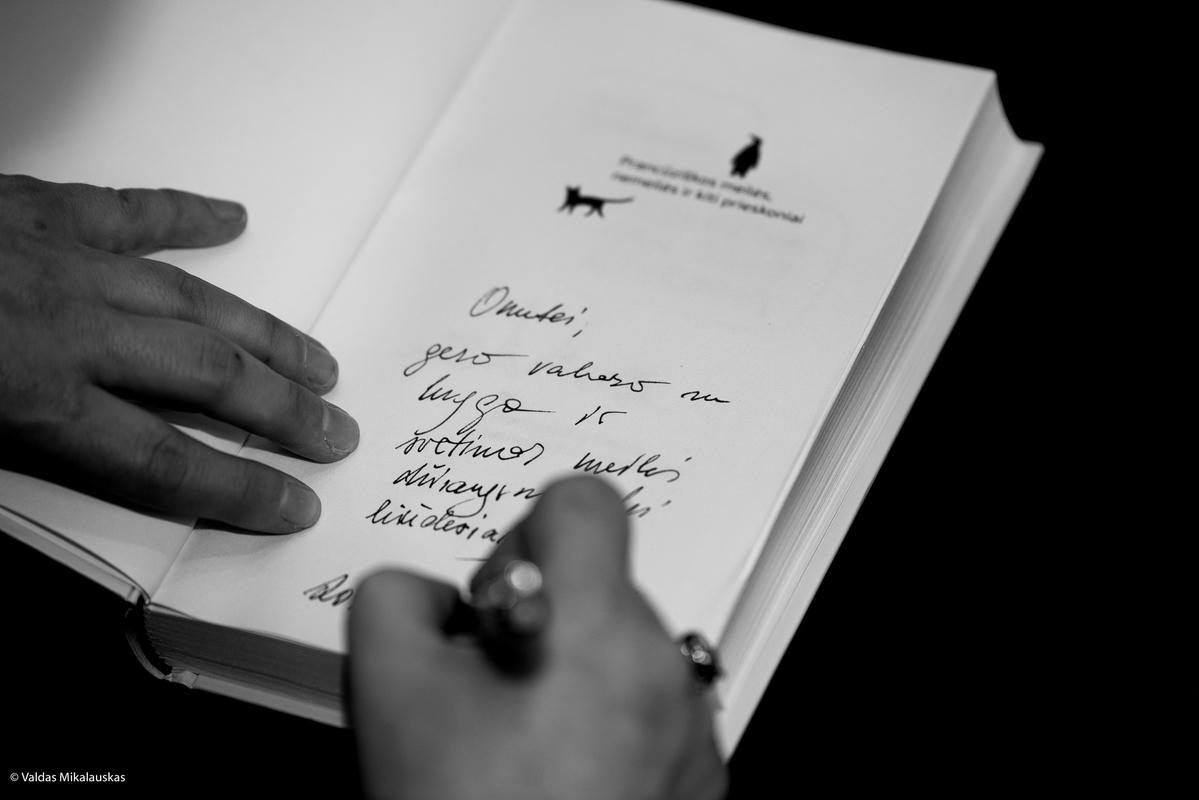 Prancūziškos meilės,
nemeilės ir kiti prieskoniai
Onutei,
gero vakaro su
hygge ir
svetimos meilės
liūdesiai
© Valdas Mikalauskas